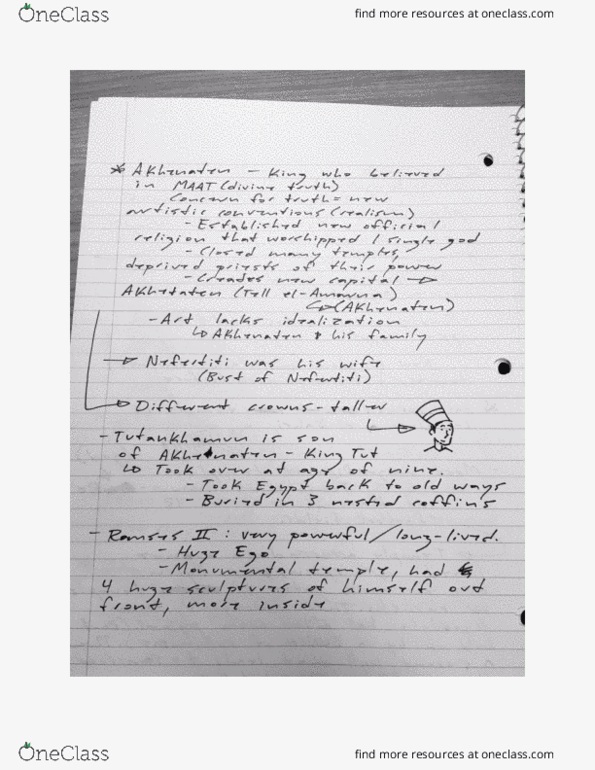 OneClass
find more resources at oneclass.com
* Akhenaten - King who believed
in MAAT (divine truth)
Concern for truth = new
artistic conventions (realism)
- Established new official
religion that worshipped 1 single god
- Closed many temples,
deprived priests of their power
- Creades new capital →
Akhetaten (Tell el-Amarna)
↳ (Akhenaten)
- Art lacks idealization
↳ Akhenaten & his family
→ Nefertiti was his wife
(Bust of Nefertiti)
→ Different crowns - taller
- Tutankhamun is son
of Akhenaten - King Tut
↳ Took over at age of nine.
- Took Egypt back to old ways
- Buried in 3 nested coffins
- Ramses II : very powerful / long-lived.
- Huge Ego
- Monumental temple, had
4 huge sculptures of himself out
front, more inside
OneClass
find more resources at oneclass.com